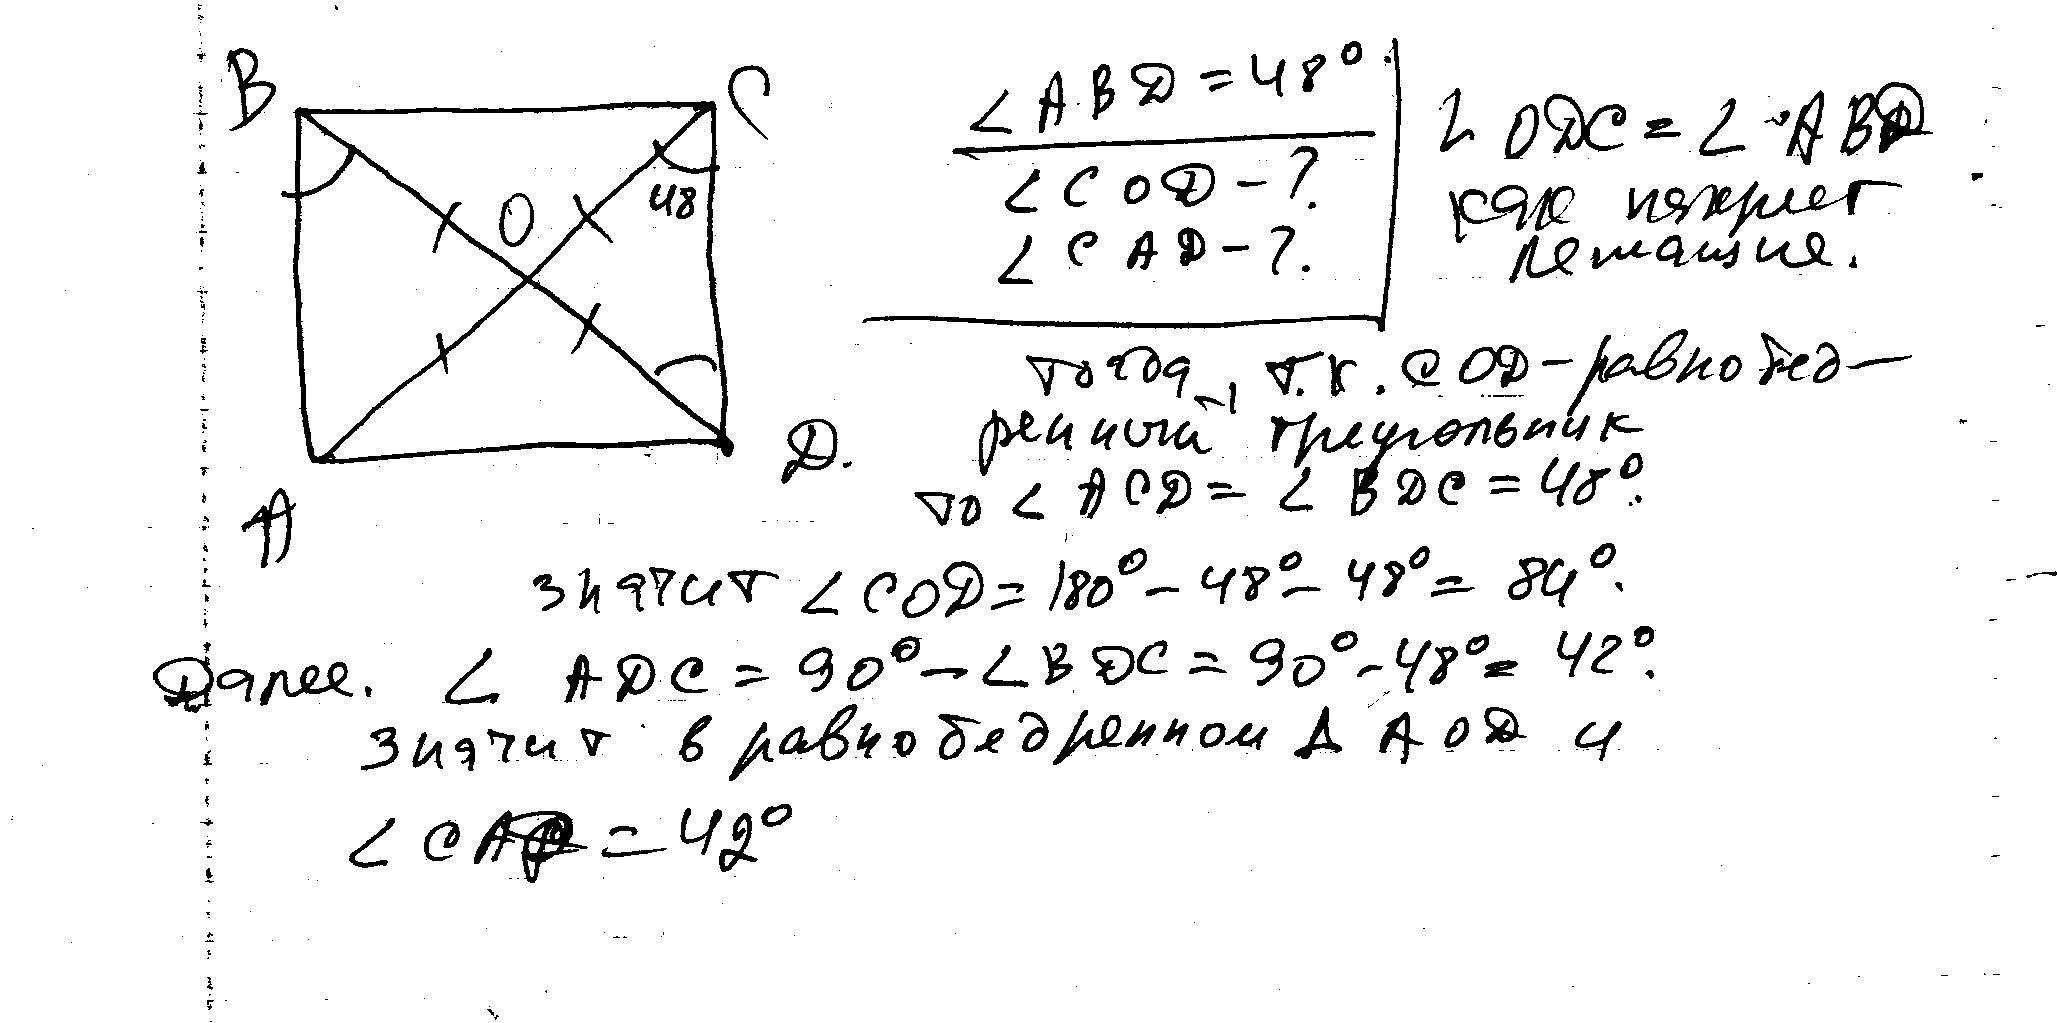 B
C
O
48
A
D.
∠ABD = 48°.
∠COD - ?
∠CAD - ?
∠ODC = ∠ABD
как накрест
лежащие.
тогда, т.к. COD - равнобед-
ренный треугольник
то ∠ACD = ∠BDC = 48°.
значит ∠COD = 180° - 48° - 48° = 84°.
Далее. ∠ADC = 90° - ∠BDC = 90° - 48° = 42°.
значит в равнобедренном Δ AOD и
∠CAD = 42°